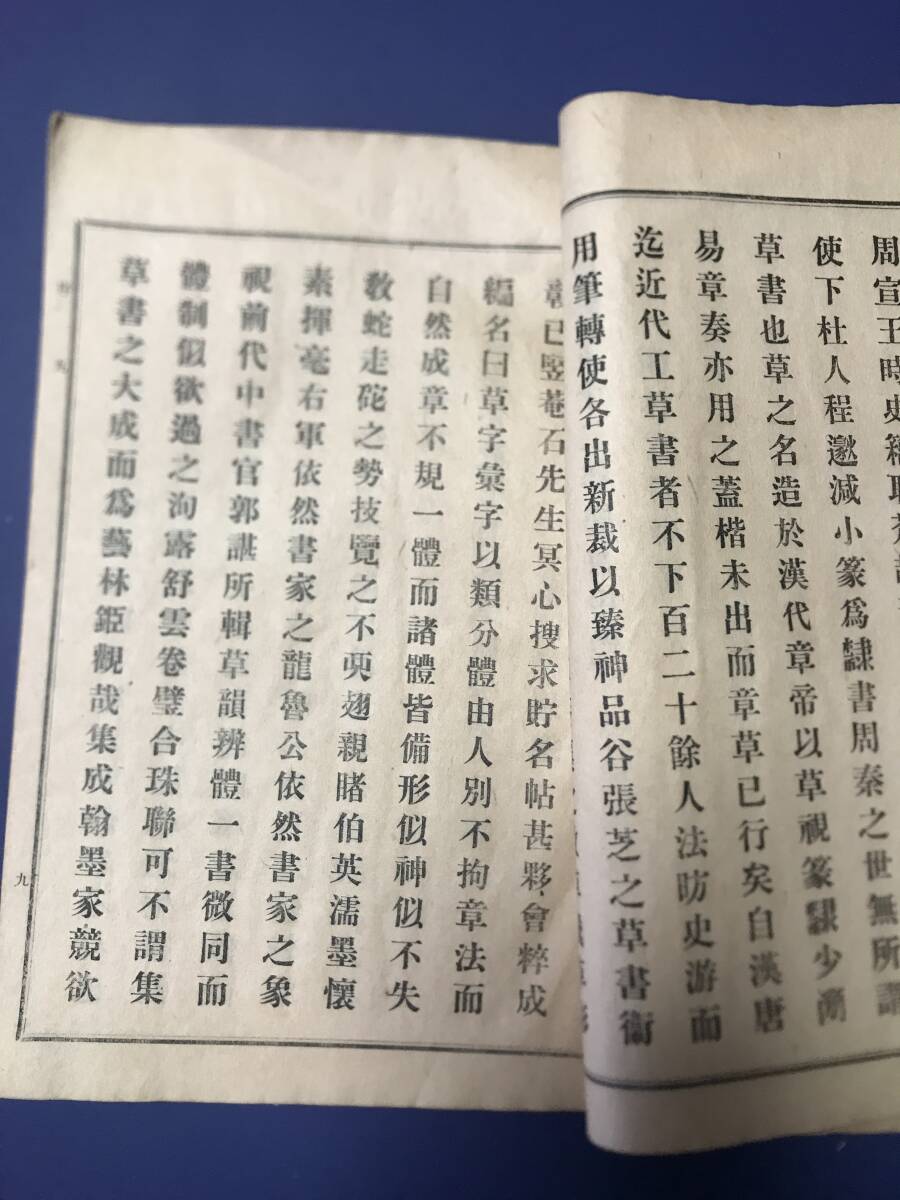 周宣王時史籀
使下杜人程邈減小篆爲隸書周秦之世無所謂
草書也草之名造於漢代章帝以草視篆隸少
易章奏亦用之蓋楷未出而章草已行矣自漢唐
迄近代工草書者不下百二十餘人法昉史游而
用筆轉使各出新裁以臻神品谷張芝之草書衞
已竪菴石先生冥心搜求貯名帖甚夥會粹成
編名曰草字彙字以類分體由人別不拘章法而
自然成章不規一體而諸體皆備形似神似不失
敎蛇走砣之勢技覽之不𠕀翅親賭伯英濡墨懷
素揮毫右軍依然書家之龍魯公依然書家之象
視前代中書官郭諶所輯草韻辨體一書微同而
體制似欲過之洵露舒雲卷璧合珠聯可不謂集
草書之大成而爲藝林鉅觀哉集成翰墨家競欲
九